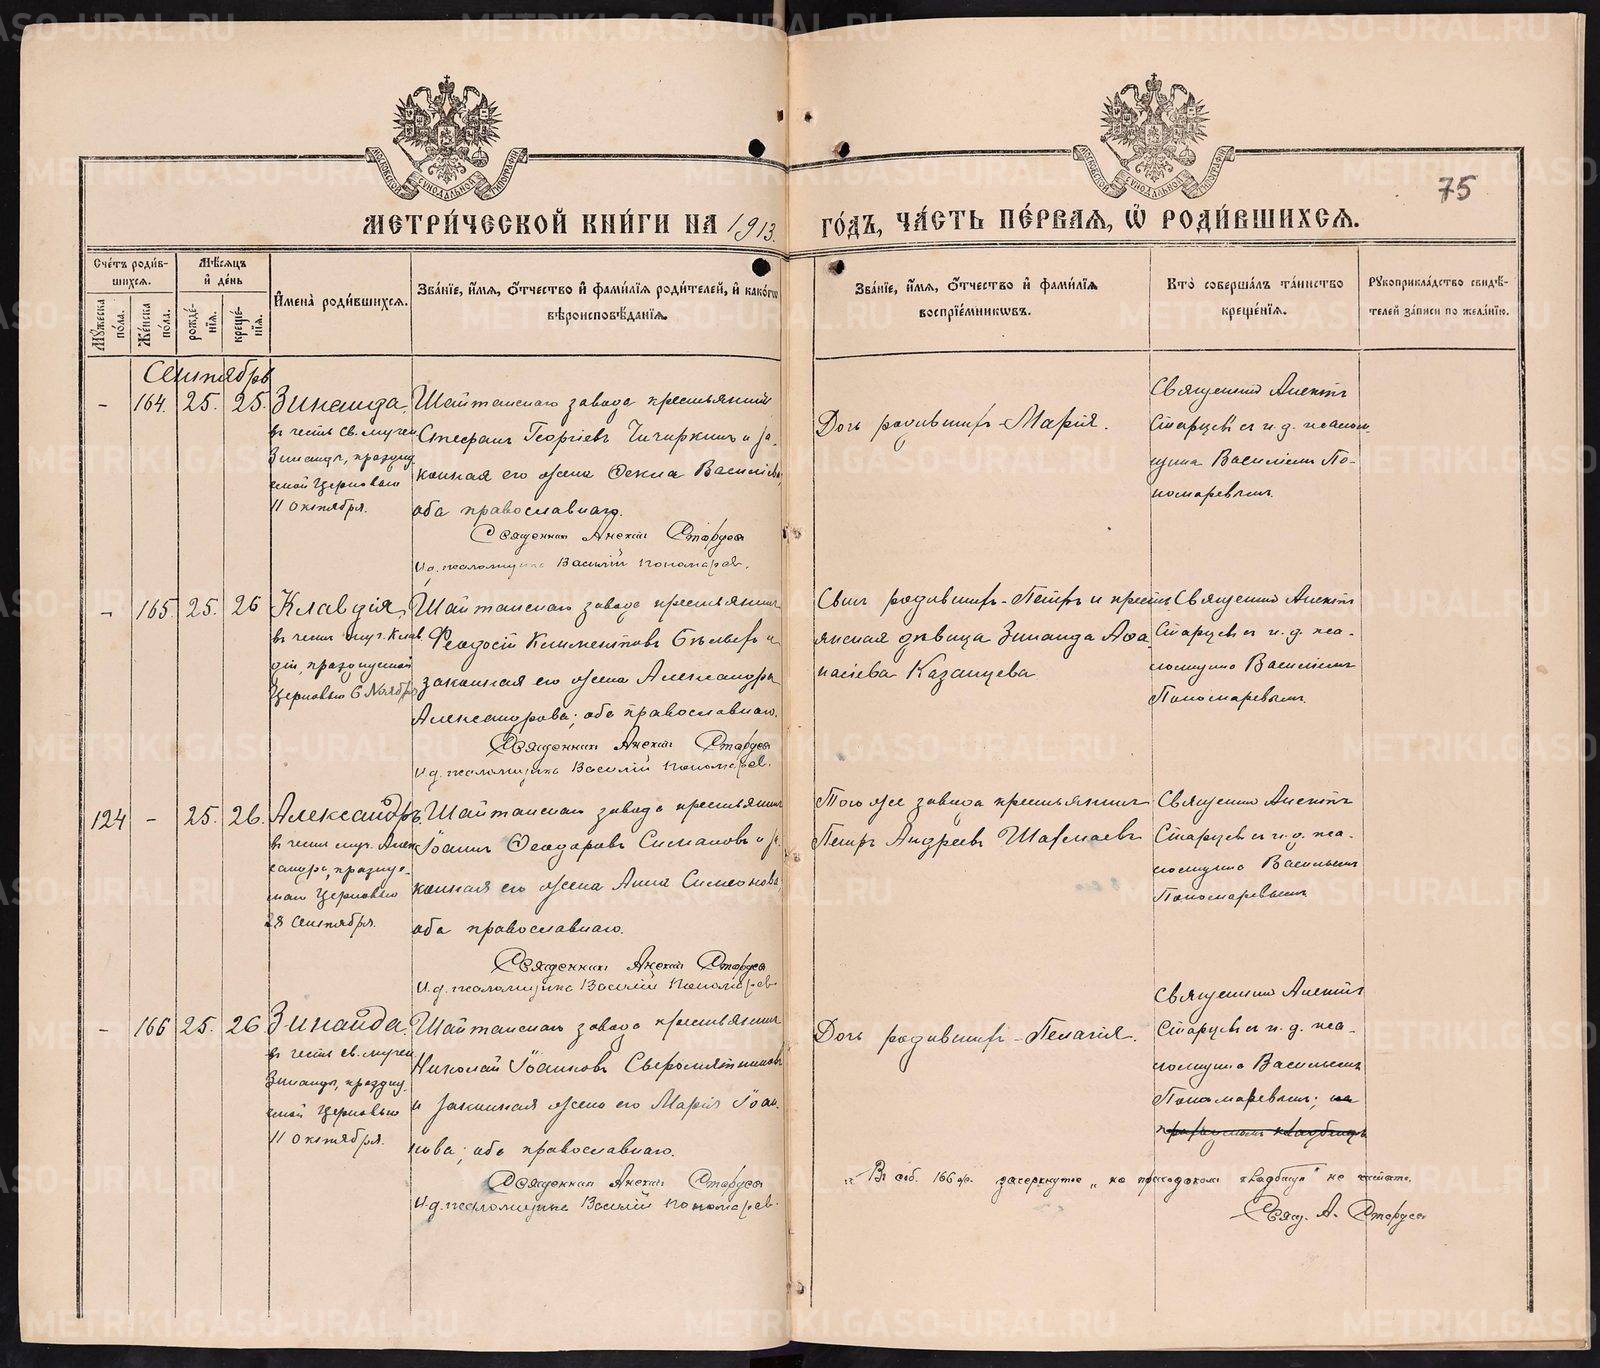 МЕТРИ́ЧЕСКОЙ КНИ́ГИ НА 1913. ГО́ДЪ, ЧА́СТЬ ПЕ́РВАЯ, Ѡ҆ РОДИ́ВШИХСЯ.
75
МОСКОВСКОЙ СѴНОДАЛЬНОЙ ТИПОГРАФІИ
МОСКОВСКОЙ СѴНОДАЛЬНОЙ ТИПОГРАФІИ
Сче́тъ роди́в-
шихся.
Мѣ́сяцъ
и҆ де́нь
Мꙋ́жеска по́ла.
Же́нска по́ла.
рожде́-нїя.
креще́-нїя.
И҆мена̀ роди́вшихся.
Зва́нїе, и҆́мя, ѻ҆́тчество и҆ фами́лїя роди́телей, и҆ како́гѡ
вѣроисповѣ́данїя.
Зва́нїе, и҆́мя, ѻ҆́тчество и҆ фами́лїя
воспрїе́мникѡвъ.
Кто̀ соверша́лъ та́инство
креще́нїя.
Рꙋкоприкла́дство свидѣ́-
телей за́писи по жела́нїю.
Сентябрь
- 164. 25. 25. Зинаида,
въ честь св. мучен.
Зинаиды, празднуе-
мой Церковью
11 октября.
Шайтанскаго завода крестьянинъ
Стефанъ Георгіевъ Чичиркинъ и за-
конная его жена Фекла Васильева,
оба православнаго.
Священникъ Алексій Старцевъ
И.д. псаломщика Василій Пономаревъ.
Дочь родившихъ - Марія.
Священникъ Алексѣй
Старцевъ съ и. д. псалом-
щика Василіемъ По-
номаревымъ.
- 165. 25. 26 Клавдія,
въ честь муч. Клав
діи, празднуемой
Церковью 6 Ноября
Шайтанскаго завода крестьянинъ
Феодосій Климентовъ Бѣлыхъ и
законная его жена Александра
Александрова; оба православнаго.
Священникъ Алексій Старцевъ
И.д. псаломщика Василій Пономаревъ.
Сынъ родившихъ - Петръ и кресть
янская дѣвица Зинаида Афа
насіева Казанцева
Священникъ Алексѣй
Старцевъ съ и. д. пса-
ломщика Василіемъ
Пономаревымъ.
124 - 25. 26. Александръ,
въ честь муч. Алек
сандра, праздну-
емаго Церковью
28 Сентября.
Шайтанскаго завода крестьянинъ
Іоаннъ Феодоровъ Симановъ и за
конная его жена Анна Симеонова,
оба православнаго.
Священникъ Алексій Старцевъ
И.д. псаломщика Василій Пономаревъ
Того же завода крестьянинъ
Петръ Андреевъ Шахмаевъ
Священникъ Алексѣй
Старцевъ съ и. д. пса-
ломщика Васильемъ
Пономаревымъ
- 166 25. 26 Зинаида,
въ честь св. мучен.
Зинаиды, праздну-
емой Церковью
11 октября.
Шайтанскаго завода крестьянинъ
Николай Іоанновъ Сыромятниковъ
и законная жена его Марія Іоан-
нова; оба православнаго.
Священникъ Алексій Старцевъ
И.д. псаломщика Василій Пономаревъ.
Дочь родившихъ - Пелагія.
Священникъ Алексѣй
Старцевъ съ и. д. пса-
ломщика Васильемъ
Пономаревымъ; на
приходскомъ кладбищѣ
"Въ ст. 166 зачеркнутое "на приходскомъ кладбищѣ" не читать.
Свящ. А. Старцевъ
METRIKI.GASO-URAL.RU